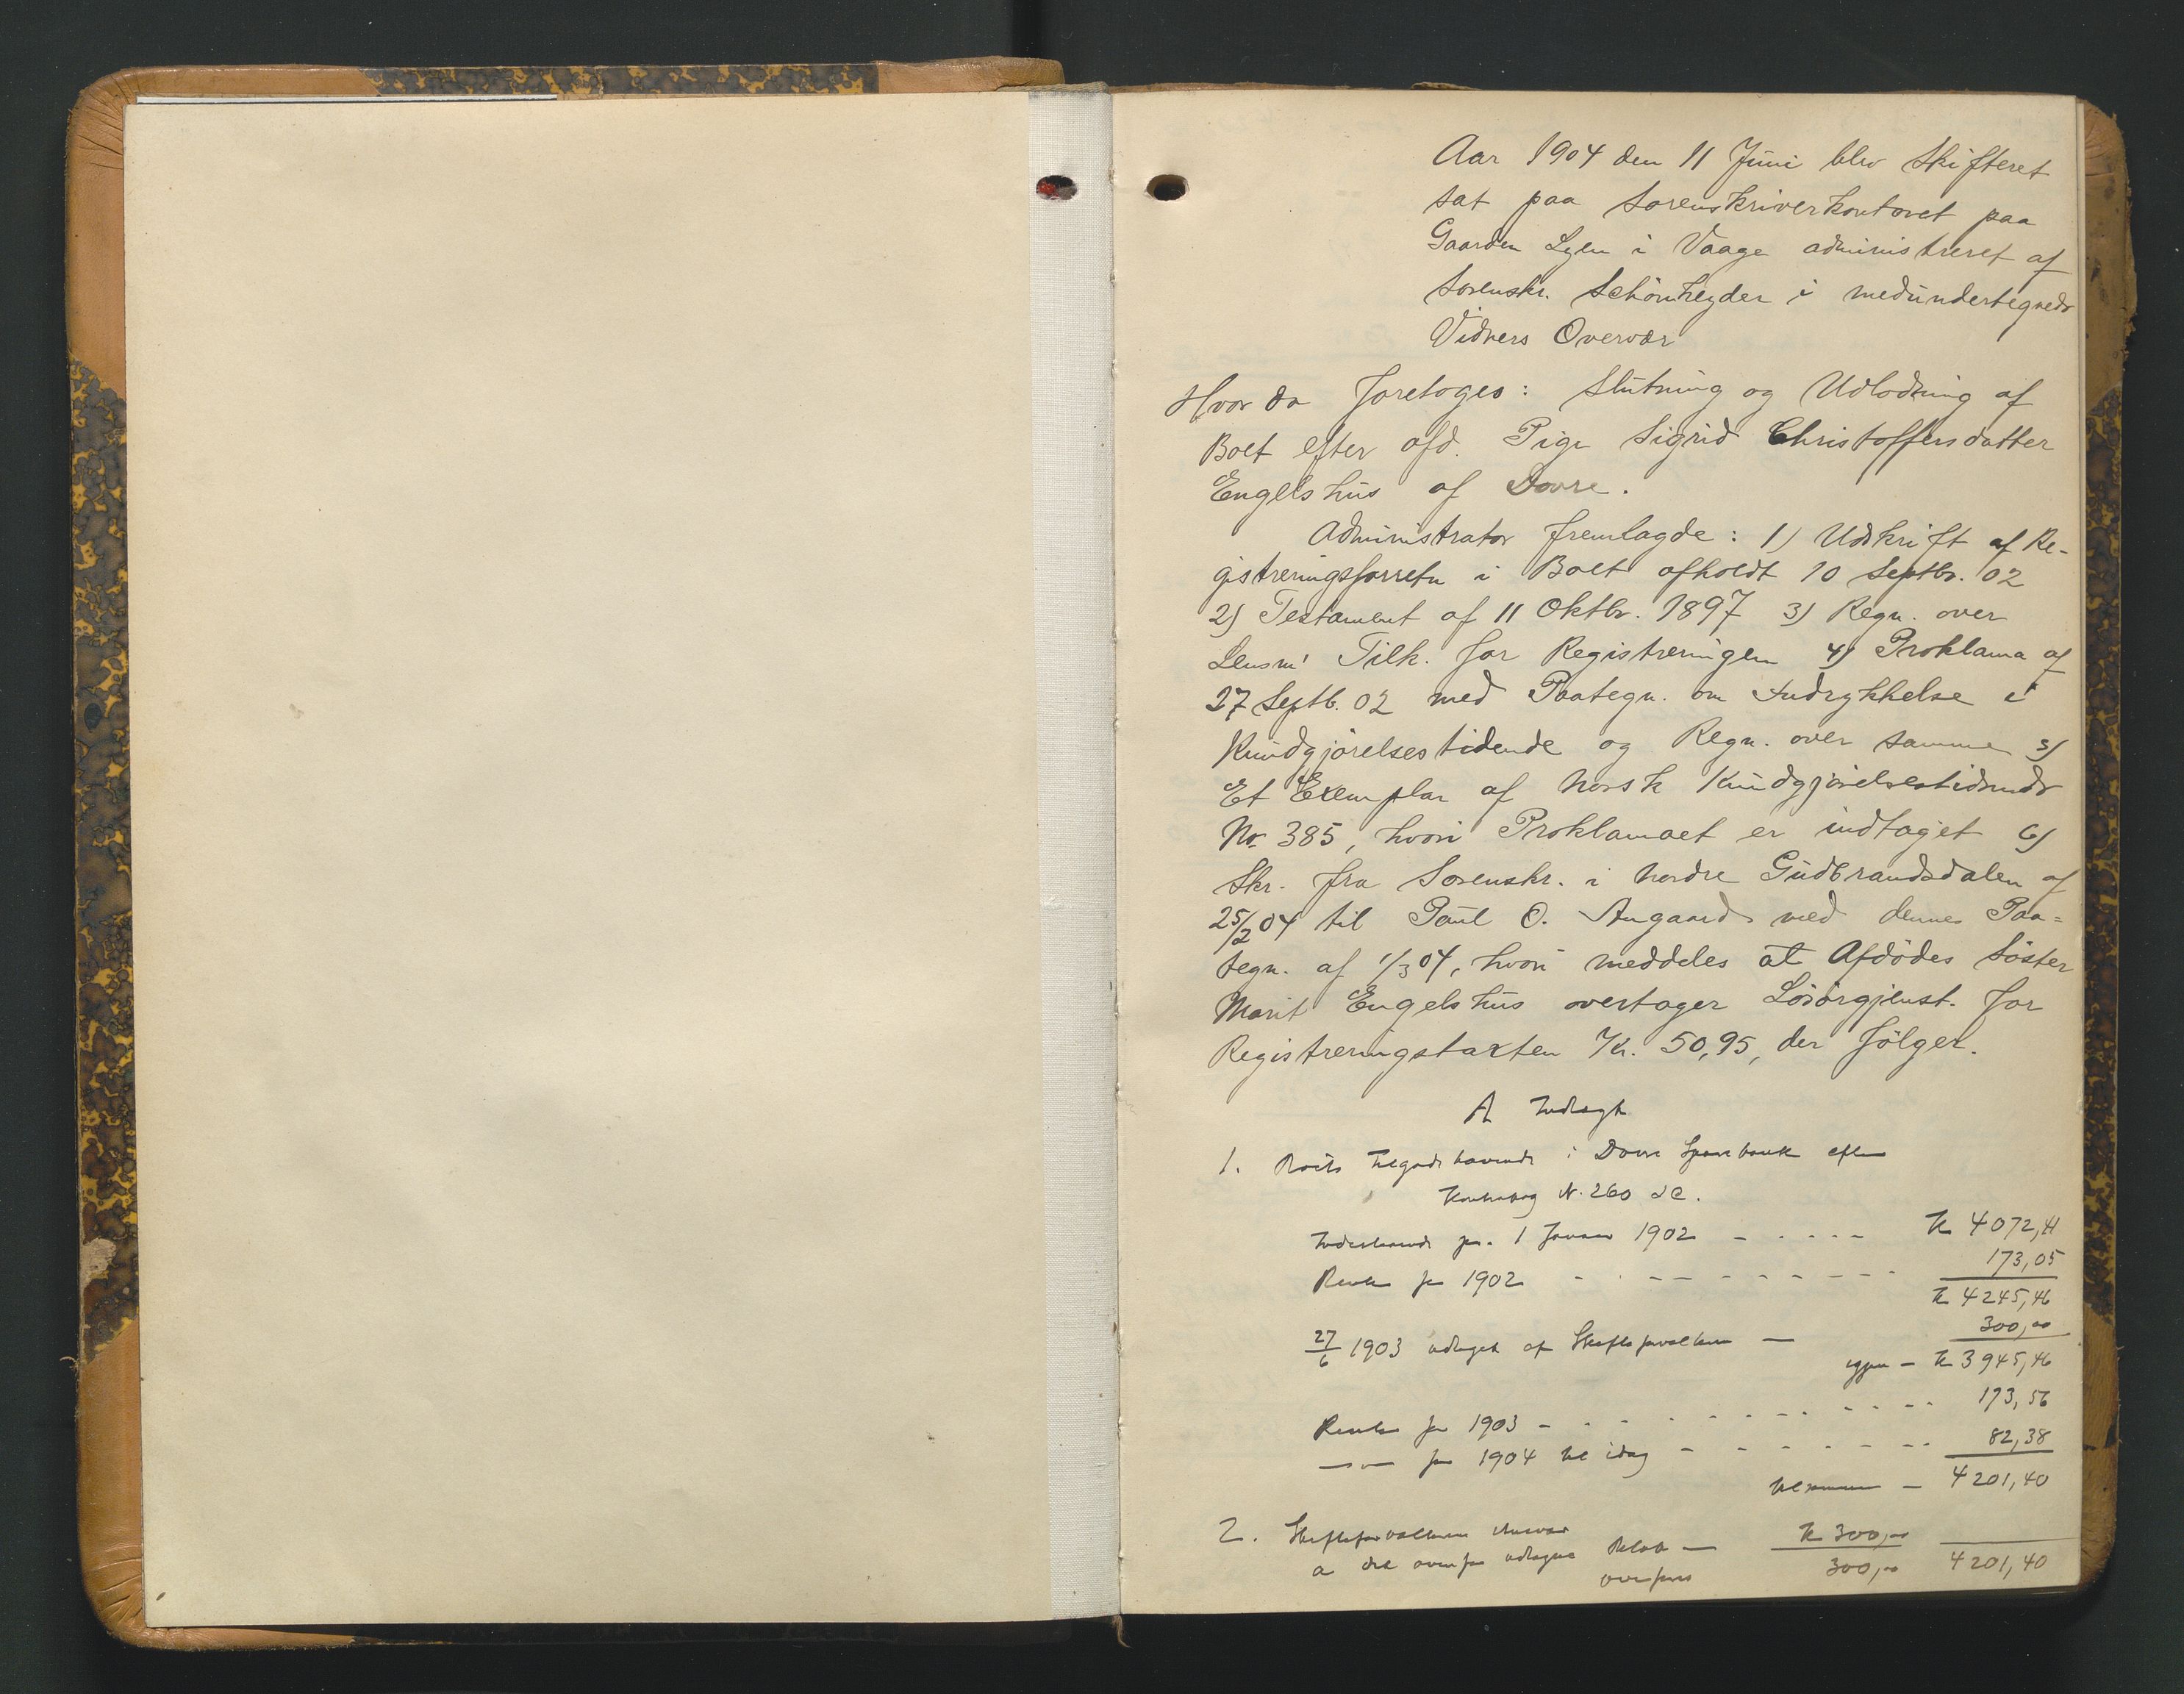 Aar 1904 den 11 Juni blev Skifteret
sat paa Sorenskriverkontoret paa
Gaarden Sylu i Vaage administreret af
Sorenskr. Schönheyder i medundertegnede
Vidners Overvær
Hvor da foretoges: Slutning og Udlodning af
Boet efter afd. Pige Sigrid Christoffersdatter
Engelshus af Dovre.
Administrator fremlagde: 1) Udskrift af Re-
gistreringsforretn i Boet afholdt 10 Septbr. 02
2) Testament af 11 Oktbr. 1897 3) Regn. over
Lensm' Tilk. for Registreringen 4) Proklama af
27 Septb. 02 med Paategn. om Indrykkelse i
Kundgjörelsestidende og Regn. over samme 5)
Et Exemplar af Norsk Kundgjörelsestidende
No. 385, hvori Proklamaet er indtaget 6)
Skr. fra Sorenskr. i Nordre Gudbrandsdalen af
25/2 04 til Paul O. Angaard med dennes Paa-
tegn. af 1/3 04, hvori meddeles at Afdödes Söster
Marit Engelshus overtager Lösörgjenst. for
Registreringstaxten Kr. 50,95, der fölger.
A Indtægt
1. Boets Tilgodehavende i Dovre Sparebank efter
Kontrabog N. 260
Indestaaende pr. 1 Januar 1902 - - - - - Kr 4072,41
Renter for 1902 - - - - - - - - - 173,05
Kr 4245,46
27/6 1903 udtaget af Skifteforvalteren — 300,00
igjen - Kr 3945,46
Renter for 1903 - - - - - - - - - 173,56
—"— for 1904 til idag - - - - - - - 82,38
tilsammen - 4201,40
2. Skifteforvalterens Ansvar
a det ovenfor udtagne Beløb — Kr 300,00
overføres 300,00 4201,40